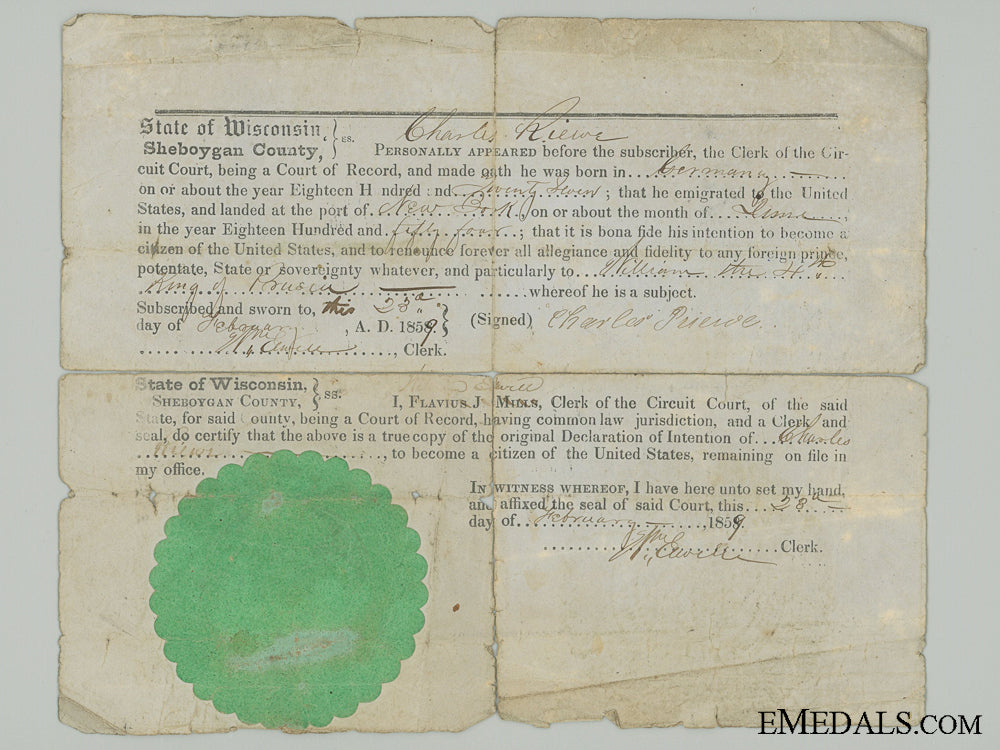 State of Wisconsin, } ss. Charles Riewe
Sheboygan County, PERSONALLY APPEARED before the subscriber, the Clerk of the Cir-
cuit Court, being a Court of Record, and made oath he was born in Germany
on or about the year Eighteen H ndred and Twenty Seven ; that he emigrated to the United
States, and landed at the port of New York, on or about the month of June ,
in the year Eighteen Hundred and fifty four ; that it is bona fide his intention to become a
citizen of the United States, and to renounce forever all allegiance and fidelity to any foreign prince,
potentate, State or sovereignty whatever, and particularly to William the 4th
King of Prusia whereof he is a subject.
Subscribed and sworn to, this 28d
day of February , A. D. 1859 } (Signed) Charles Riewe.
, Clerk.
State of Wisconsin, } ss.
SHEBOYGAN COUNTY, I, FLAVIUS J MILLS, Clerk of the Circuit Court, of the said
State, for said County, being a Court of Record, having common law jurisdiction, and a Clerk and
seal, do certify that the above is a true copy of the original Declaration of Intention of Charles
Riewe , to become a citizen of the United States, remaining on file in
my office.
IN WITNESS WHEREOF, I have here unto set my hand,
and affixed the seal of said Court, this 28d
day of February , 1859
Clerk.
EMEDALS.COM